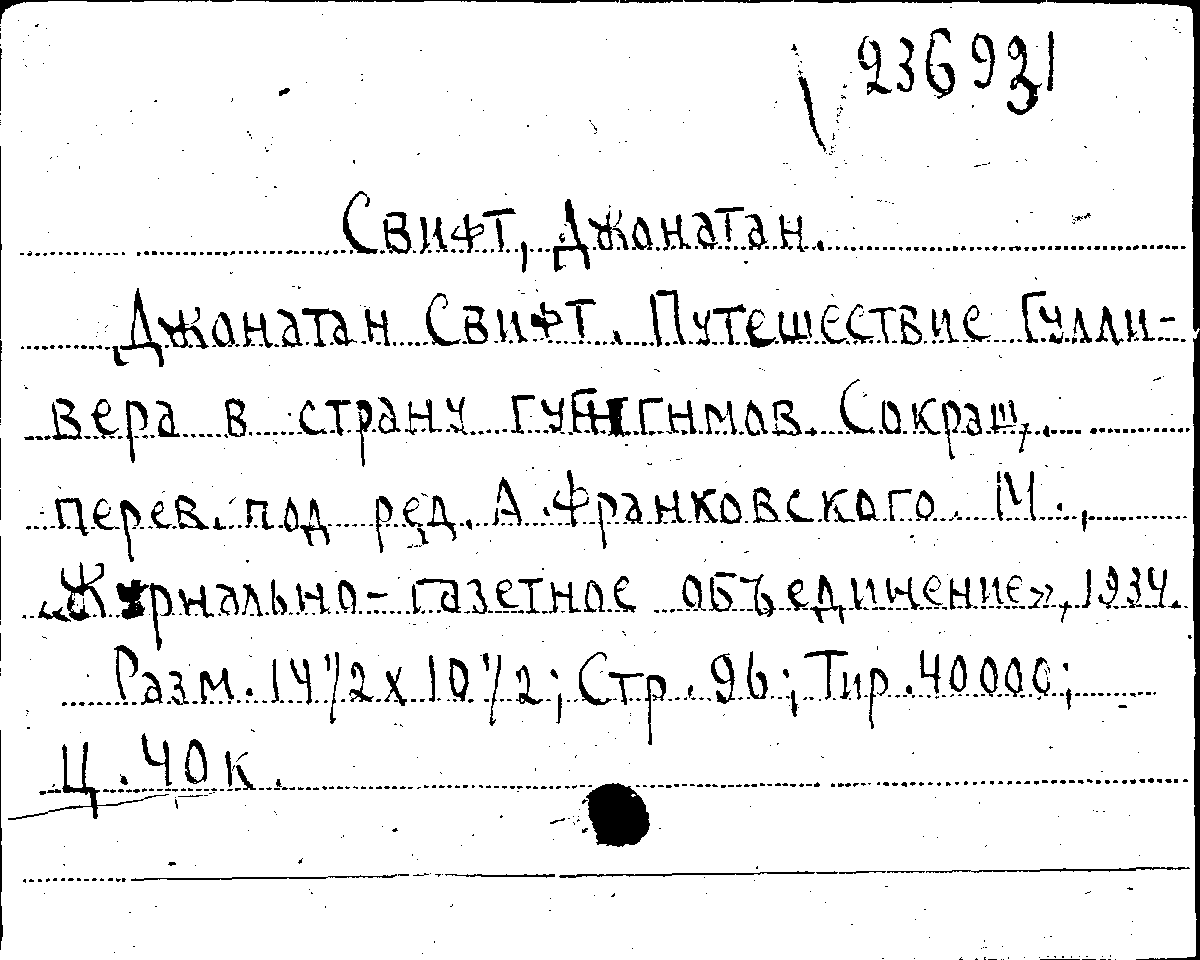 236921
Свифт, Джонатан.
Джонатан Свифт. Путешествие Гулли-
вера в страну гуингнмов. Сокращ.
перев. под ред. А. Франковского. М.,
«Журнально-газетное объединение», 1934.
Разм. 14 1/2 x 10 1/2; Стр. 96; Тир. 40000;
Ц. 40 к.